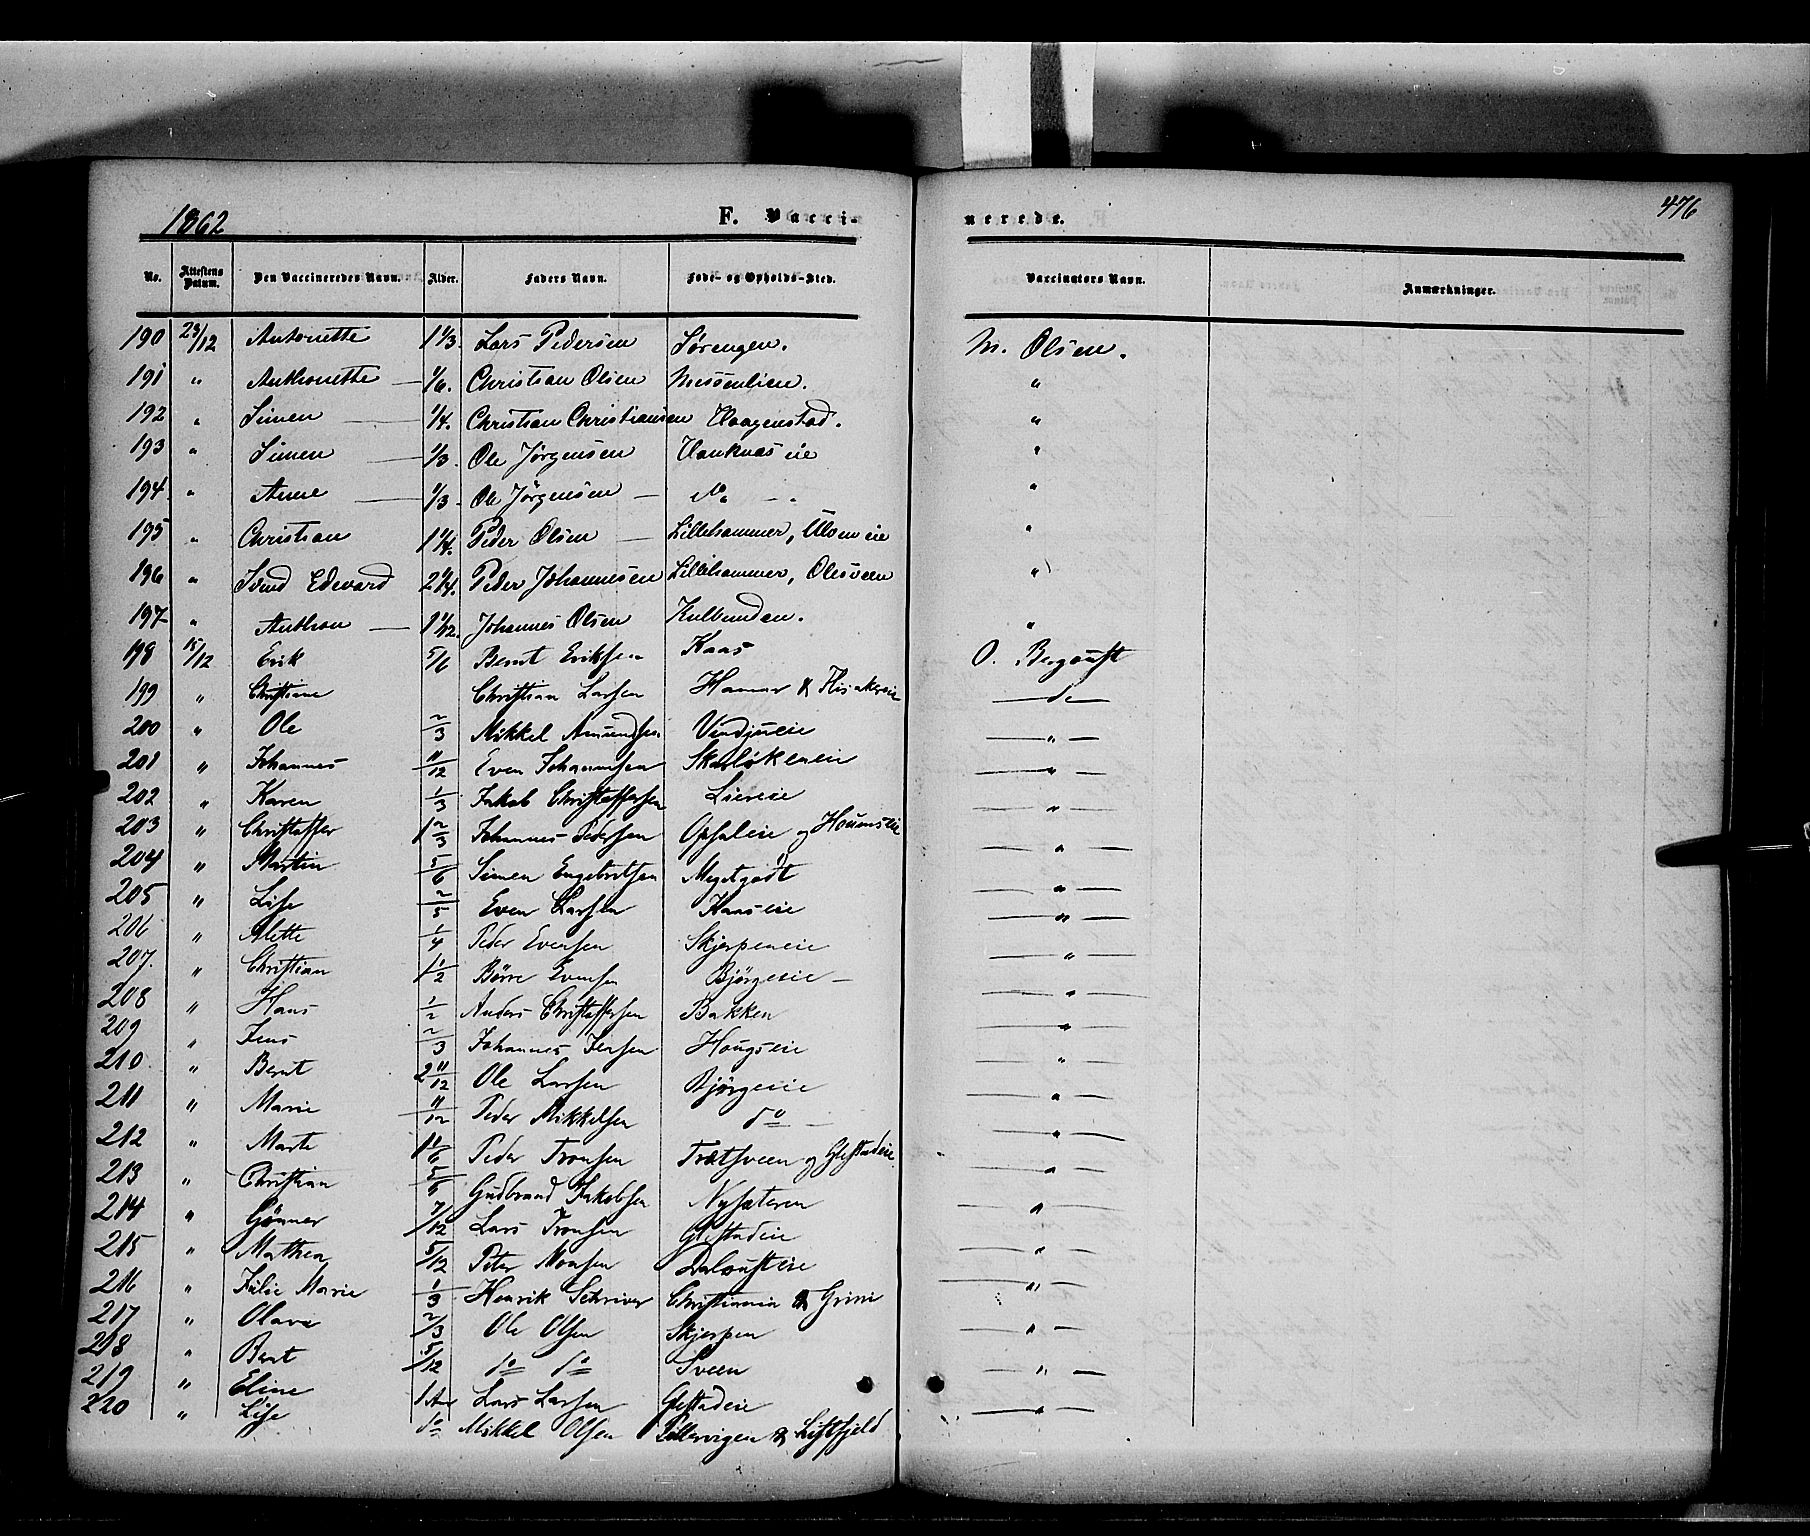 1862 F. Vacci- nerede. 476
No. Attestens Datum. Den Vaccineredes Navn. Alder. Faders Navn. Føde- og Opholds-Sted. Vaccinators Navn. Anmærkninger.
190 23/12 Antonette 1 1/3. Lars Pedersen Sörengen. M. Olsen.
191 " Anthonette — 1/6. Christian Olsen Messenlien. "
192 " Simen — 1/4. Christian Christiansen Haagenstad. "
193 " Simen — 1/3. Ole Jörgensen Hanknæs eie "
194. " Anne — 1/3. Ole Jörgensen — "
195 " Christian 1 1/4. Peder Olsen — Lillehammer, Ulven eie "
196 " Svend Edevard 2 1/4. Peder Johannesen Lillehammer, Olesveen "
197 " Anthon — 1 1/12. Johannes Olsen "
198 15/12 Erik 5/6 Bernt Eriksen Kaas O. Bergoust
199 " Christiane Christian Larsen Hamar & do
200 " Ole 2/3 Mikkel Amundsen Vindjueie — " —
201 " Johannes 11/12 Even Johannesen Skarløkeneie — " —
202 " Karen 1/3 Jakob Christoffersen Liereie — " —
203 " Christoffer 1 2/3 Johannes Pedersen Opsaleie og — " —
204 " Martin 5/6 Simen Engebretsen — " —
205 " Lise 2/5 Even Larsen Kaaseie — " —
206 " Alette 1/4 Peder Evensen Skjerpeneie — " —
207. " Christian 1 1/2 Börre Evensen Bjørgeeie — — " —
208 " Hans 1/2 Anders Christoffersen Bakken — " —
209 " Jens 2/3 Johannes Jensen Hougseie — " —
210 " Bernt 2 11/12 Ole Larsen Bjørgeeie — " —
211 " Marie 11/12 Peder Mikkelsen do — — " —
212 " Marte 1 1/6 Peder Tronsen Trætsveen og Glestadeie — " —
213 " Christian 5/6 Gudbrand Jakobsen Nysæteren — " —
214 " Gunner 7/12 Lars Tronsen Glestadeie — " —
215 " Mathea 5/12 Peter Monsen Dalousteie — " —
216 " Julie Marie 1/3 Henrik Schriver Christiania & Grini — " —
217 " Olava 2/3 Ole Olsen Skjerpen — " —
218 " Bent 5/12 do do Sveen — " —
219 " Eline 1 Aar Lars Larsen Glestadeie — " —
220 " Lise do Mikkel Olsen Lillevigen & Liftfjeld